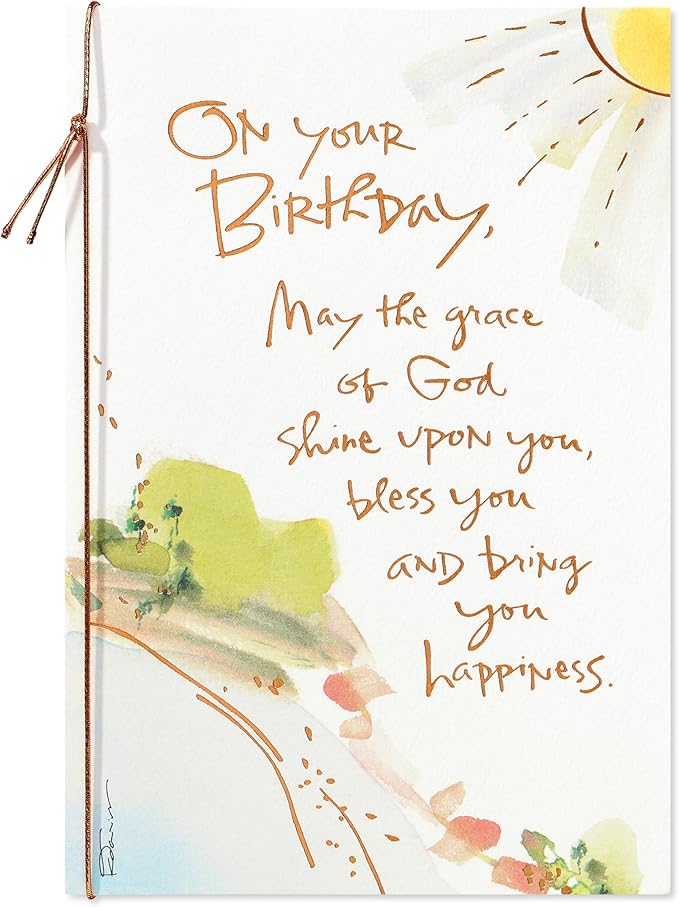 On your
Birthday,
May the grace
of God
shine upon you,
bless you
and bring
you
happiness.